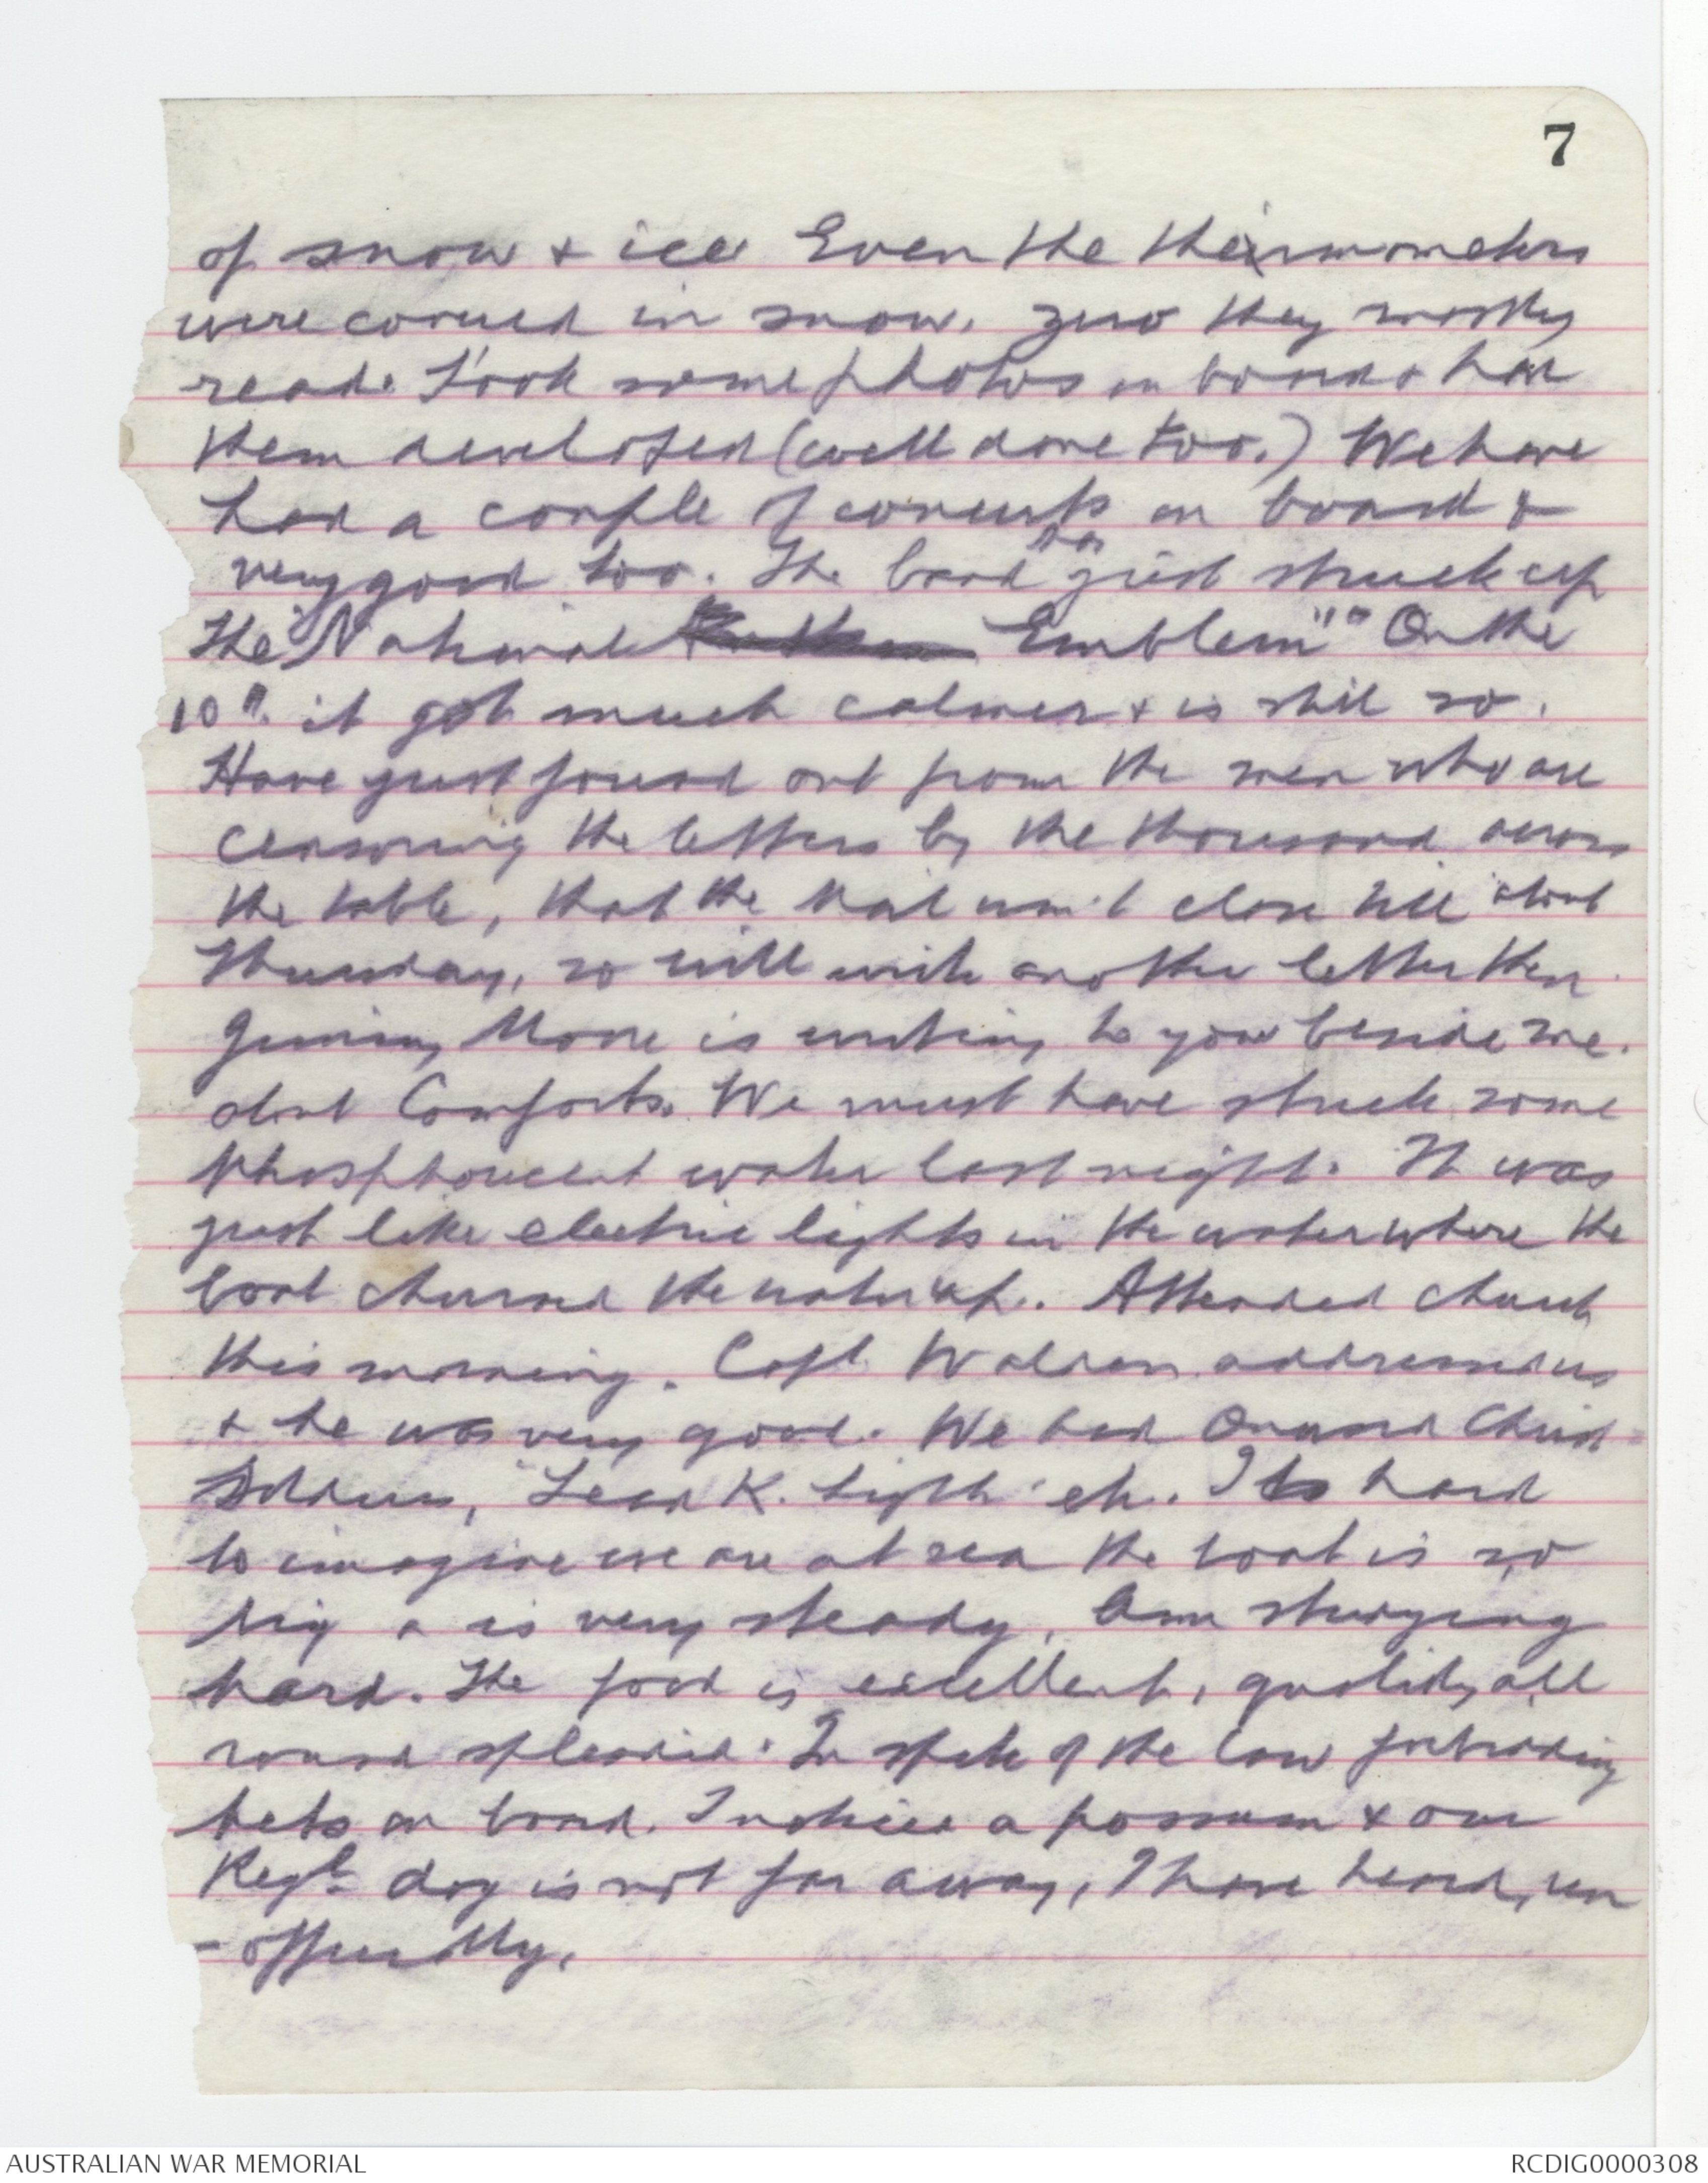 7
of snow & ice Even the thermometers
were covered in snow. Zero they mostly
read. Took some photos on board & had
them developed (well done too.) We have
had a couple of concerts on board &
very good too. The band has just struck up
the "National Emblem"" On the
10th it got much calmer & is still so.
Have just found out from the men who are
censoring the letters by the thousand across
the table, that the mail won't close till about
Thursday, so will write another letter then.
Jimmy Moore is writing to you beside me.
about Comforts. We must have struck some
phosphorescent water last night. It was
just like electric lights in the water where the
boat churned the water up. Attended church
this morning. Capt. Walden addressed us
& he was very good. We had Onward Christ
Soldiers, "Lead K. Light" etc. Its hard
to imagine we are at sea the boat is so
big & is very steady. Am studying
hard. The food is excellent, quality all
round splendid. In spite of the law forbidding
pets on board. I noticed a possum & our
Regtl dog is not far away, I have heard, un
-officially.
AUSTRALIAN WAR MEMORIAL
RCDIG0000308